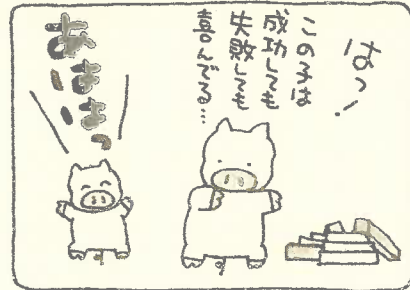 はっ！
この子は
成功しても
失敗しても
喜んでる…
あははっ